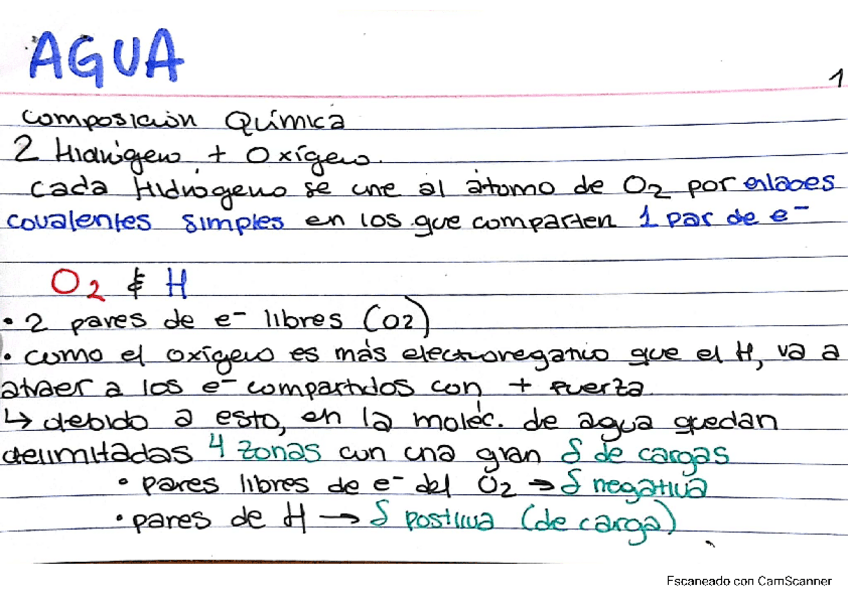 AGUA
1
Composición Química
2 Hidrógeno + Oxígeno.
Cada Hidrógeno se une al átomo de O2 por enlaces
covalentes simples en los que comparten 1 par de e-
O2 & H
• 2 pares de e- libres (O2)
• como el oxígeno es más electronegativo que el H, va a
atraer a los e- compartidos con + fuerza
↳ debido a esto, en la moléc. de agua quedan
delimitadas 4 zonas con una gran δ de cargas
• pares libres de e- del O2 → δ negativa
• pares de H → δ postiva (de carga)
Escaneado con CamScanner